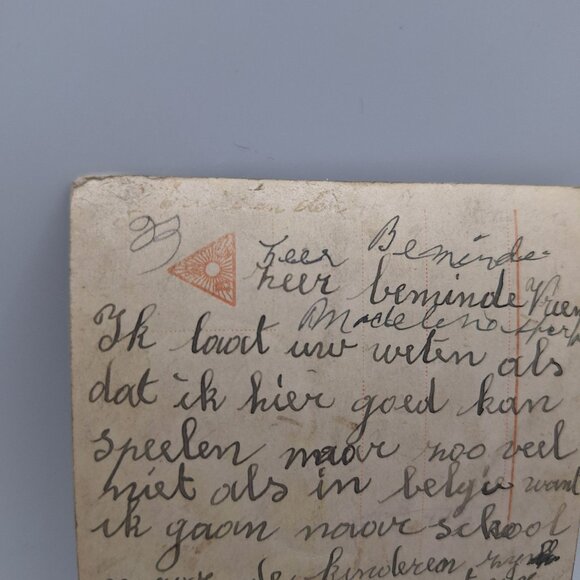 33
heer Beminde
heer beminde Vrien
Madelena
Ik laat uw weten als
dat ik hier goed kan
speelen maar zoo veel
niet als in belgie want
ik gaan naar school
de kinderen